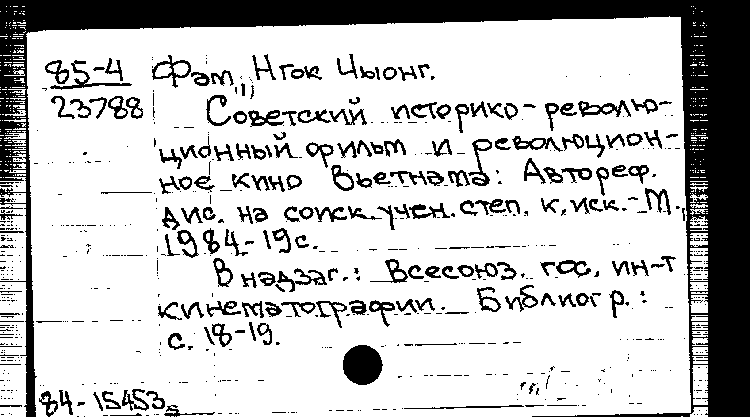 85-4 Фам Нгок Чыонг.
23788 Советский историко-революционный фильм и революцион-
ное кино Вьетнама: Автореф.
дис. на соиск. учен. степ. к. иск. - М.,
1984 - 19 с.
В надзаг.: Всесоюз. гос. ин-т
кинематографии. Библиогр.:
с. 18-19.
84-15453